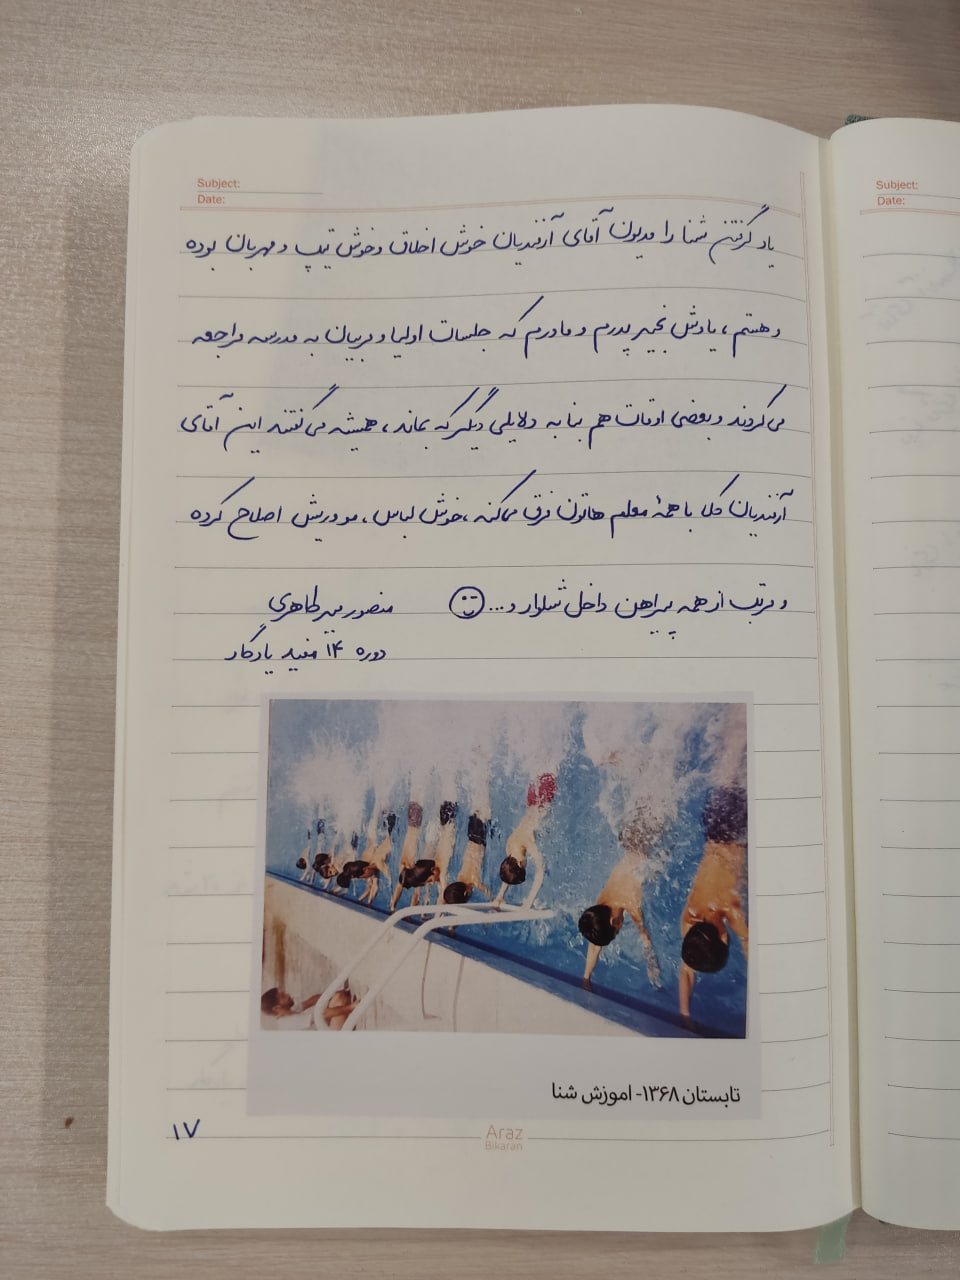 Subject:
Date:
یاد گرفتن شنا را مدیون آقای آژندیان خوش اخلاق و خوش تیپ و مهربان بوده
و هستم، یادش بخیر پدرم و مادرم که جلسات اولیا و مربیان به مدرسه مراجعه
می‌کردند و بعضی اوقات هم بنا به دلایلی دیگر که بماند، همیشه می‌گفتند این آقای
آژندیان کلا با همهٔ معلم هاتون فرق می‌کنه، خوش لباس، مو و ریش اصلاح کرده
و مرتب از همه پیراهن داخل شلوار و... منصور میرطاهری
دوره ۱۴ مفید یادگار
تابستان ۱۳۶۸- اموزش شنا
۱۷
Araz
Bikaran
Subject:
Date: